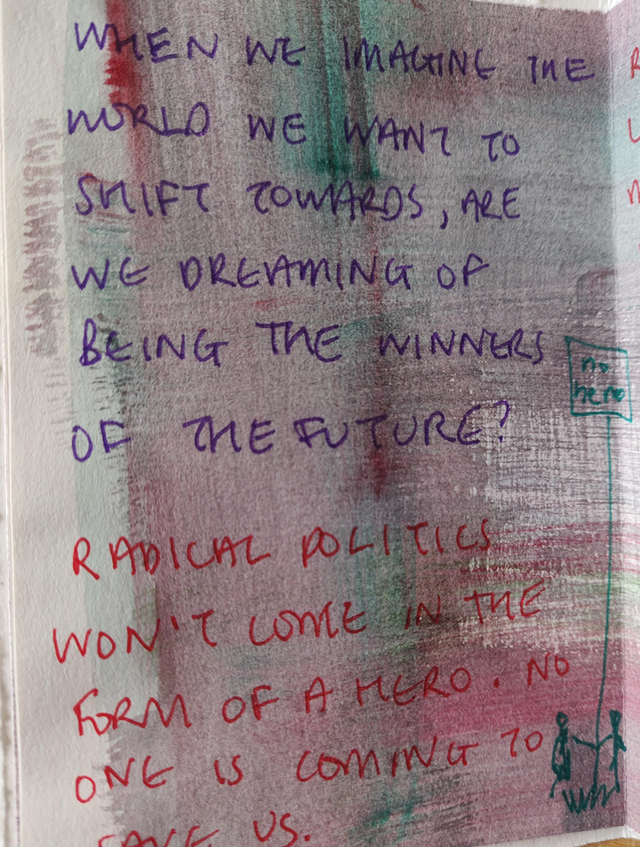 WHEN WE IMAGINE THE
WORLD WE WANT TO
SHIFT TOWARDS, ARE
WE DREAMING OF
BEING THE WINNERS
OF THE FUTURE?
no
hero
RADICAL POLITICS
WON'T COME IN THE
FORM OF A HERO. NO
ONE IS COMING TO
SAVE US.